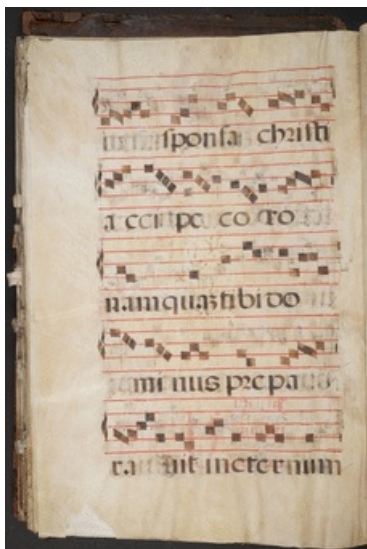 sponsa christi
accipe coro
nam quaʒ tibi do
minus prepa
ra uit in eternum